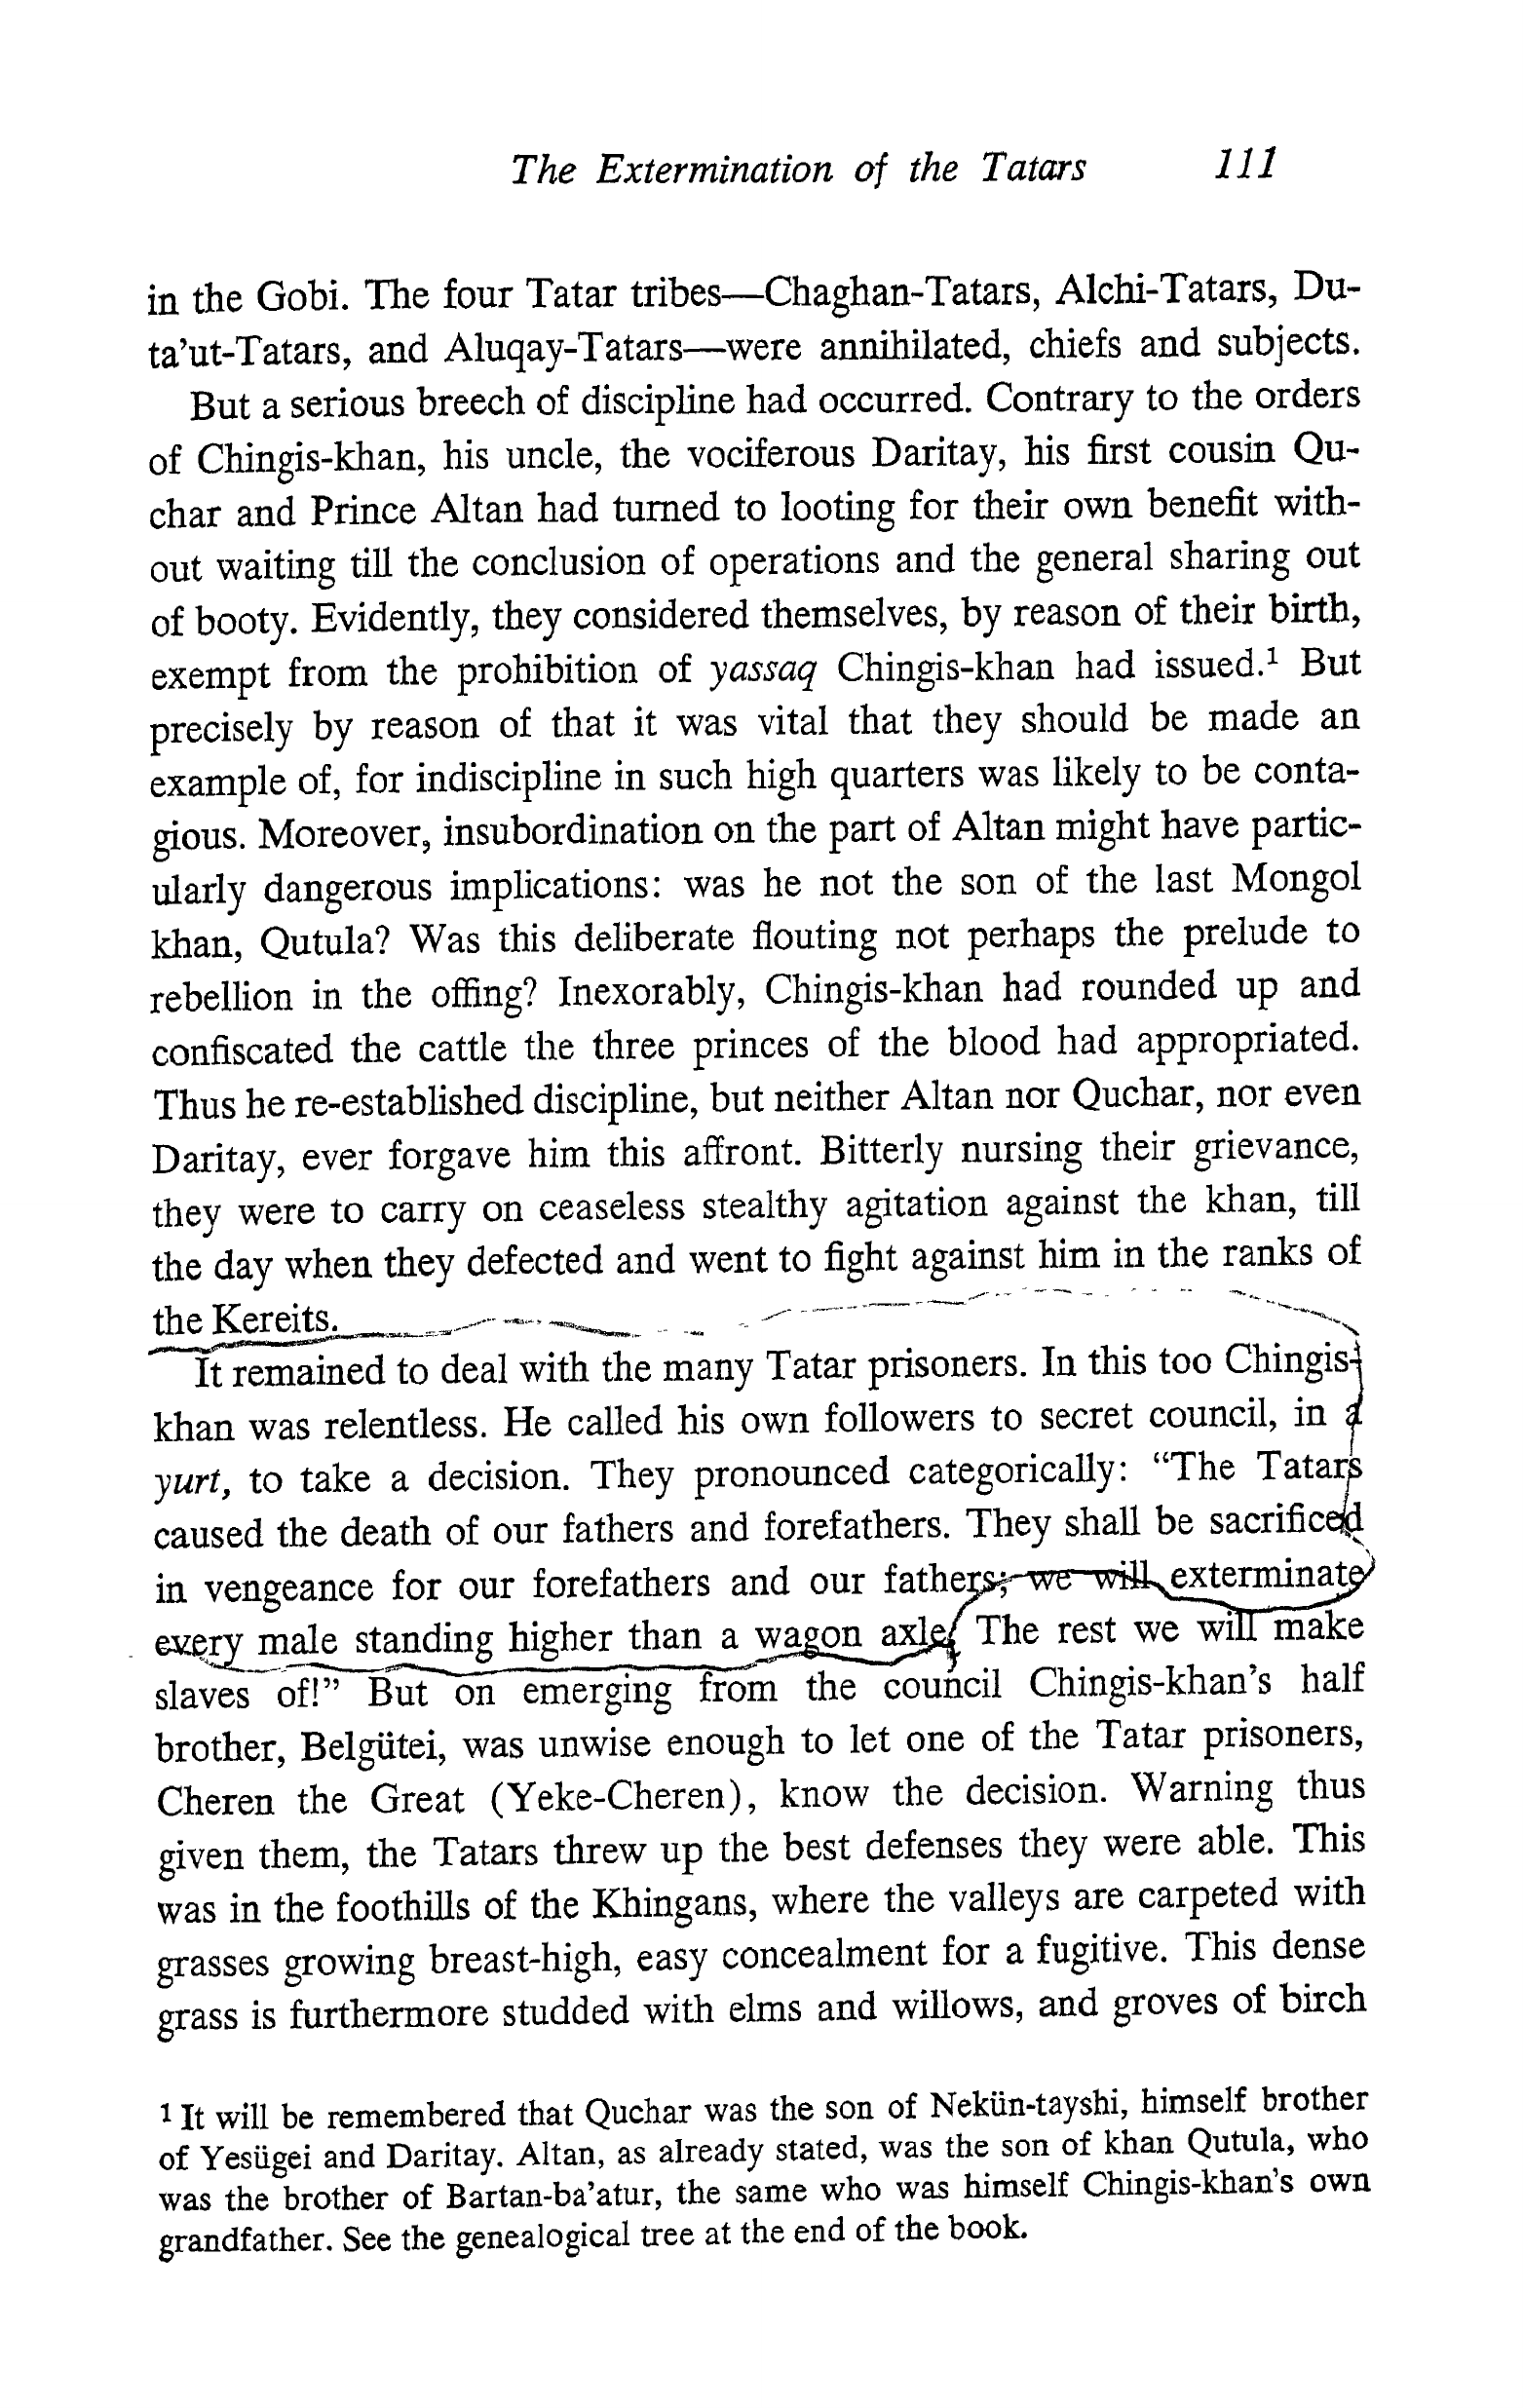 The Extermination of the Tatars 111
in the Gobi. The four Tatar tribes—Chaghan-Tatars, Alchi-Tatars, Du-
ta'ut-Tatars, and Aluqay-Tatars—were annihilated, chiefs and subjects.
But a serious breech of discipline had occurred. Contrary to the orders
of Chingis-khan, his uncle, the vociferous Daritay, his first cousin Qu-
char and Prince Altan had turned to looting for their own benefit with-
out waiting till the conclusion of operations and the general sharing out
of booty. Evidently, they considered themselves, by reason of their birth,
exempt from the prohibition of yassaq Chingis-khan had issued.¹ But
precisely by reason of that it was vital that they should be made an
example of, for indiscipline in such high quarters was likely to be conta-
gious. Moreover, insubordination on the part of Altan might have partic-
ularly dangerous implications: was he not the son of the last Mongol
khan, Qutula? Was this deliberate flouting not perhaps the prelude to
rebellion in the offing? Inexorably, Chingis-khan had rounded up and
confiscated the cattle the three princes of the blood had appropriated.
Thus he re-established discipline, but neither Altan nor Quchar, nor even
Daritay, ever forgave him this affront. Bitterly nursing their grievance,
they were to carry on ceaseless stealthy agitation against the khan, till
the day when they defected and went to fight against him in the ranks of
the Kereits.
It remained to deal with the many Tatar prisoners. In this too Chingis-
khan was relentless. He called his own followers to secret council, in a
yurt, to take a decision. They pronounced categorically: "The Tatars
caused the death of our fathers and forefathers. They shall be sacrificed
in vengeance for our forefathers and our fathers; we will exterminate
every male standing higher than a wagon axle. The rest we will make
slaves of!" But on emerging from the council Chingis-khan's half
brother, Belgütei, was unwise enough to let one of the Tatar prisoners,
Cheren the Great (Yeke-Cheren), know the decision. Warning thus
given them, the Tatars threw up the best defenses they were able. This
was in the foothills of the Khingans, where the valleys are carpeted with
grasses growing breast-high, easy concealment for a fugitive. This dense
grass is furthermore studded with elms and willows, and groves of birch
¹ It will be remembered that Quchar was the son of Nekün-tayshi, himself brother
of Yesügei and Daritay. Altan, as already stated, was the son of khan Qutula, who
was the brother of Bartan-ba'atur, the same who was himself Chingis-khan's own
grandfather. See the genealogical tree at the end of the book.